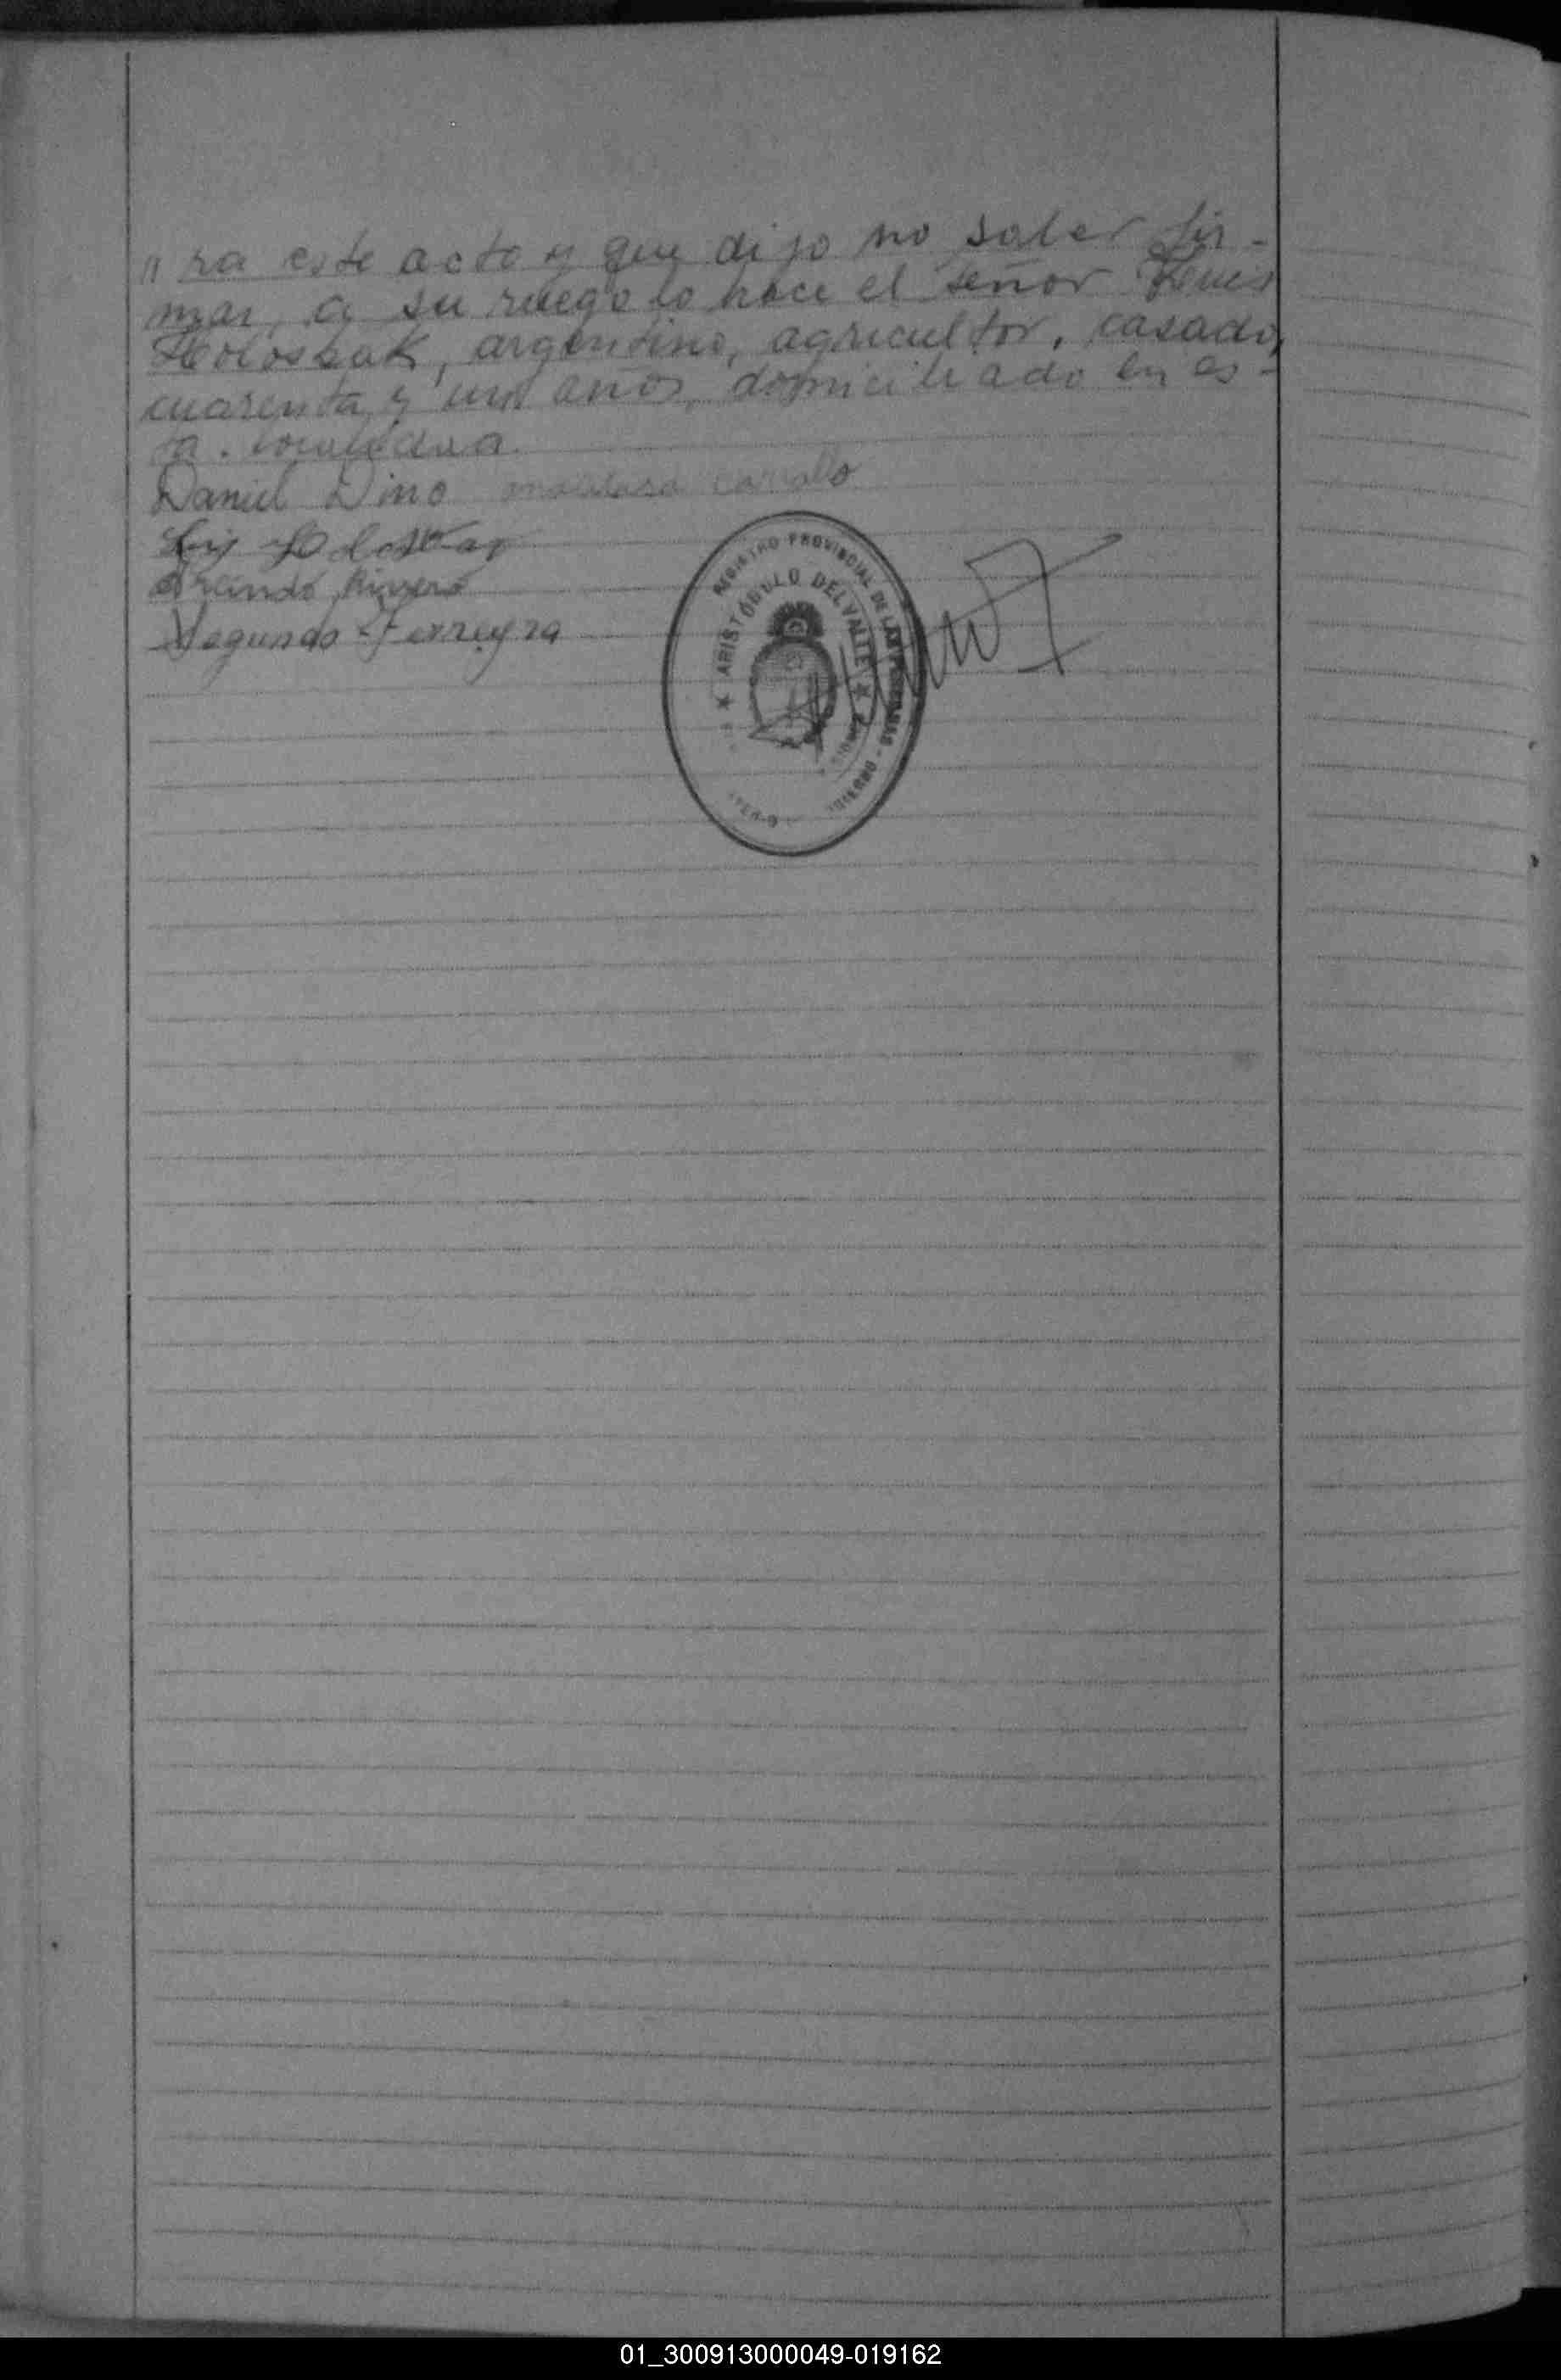 " ra este acto y que dijo no saber fir-
mar, a su ruego lo hace el señor
Holoszuk, argentino, agricultor, casado,
cuarenta y un años, domiciliado en es-
ta localidad.
Daniel Dino
Rivero
Segundo Ferreyra
REGISTRO PROVINCIAL DE LAS PERSONAS
★ ARISTÓBULO DEL VALLE ★
01_300913000049-019162